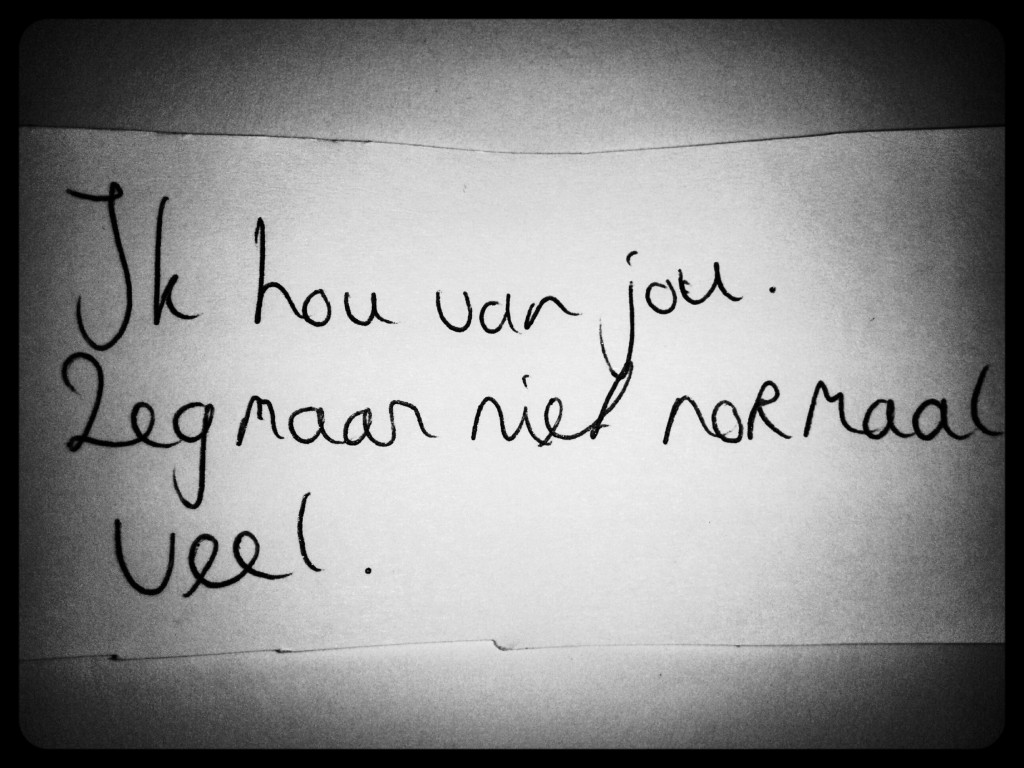 Ik hou van jou.
Zeg maar niet normaal
veel.